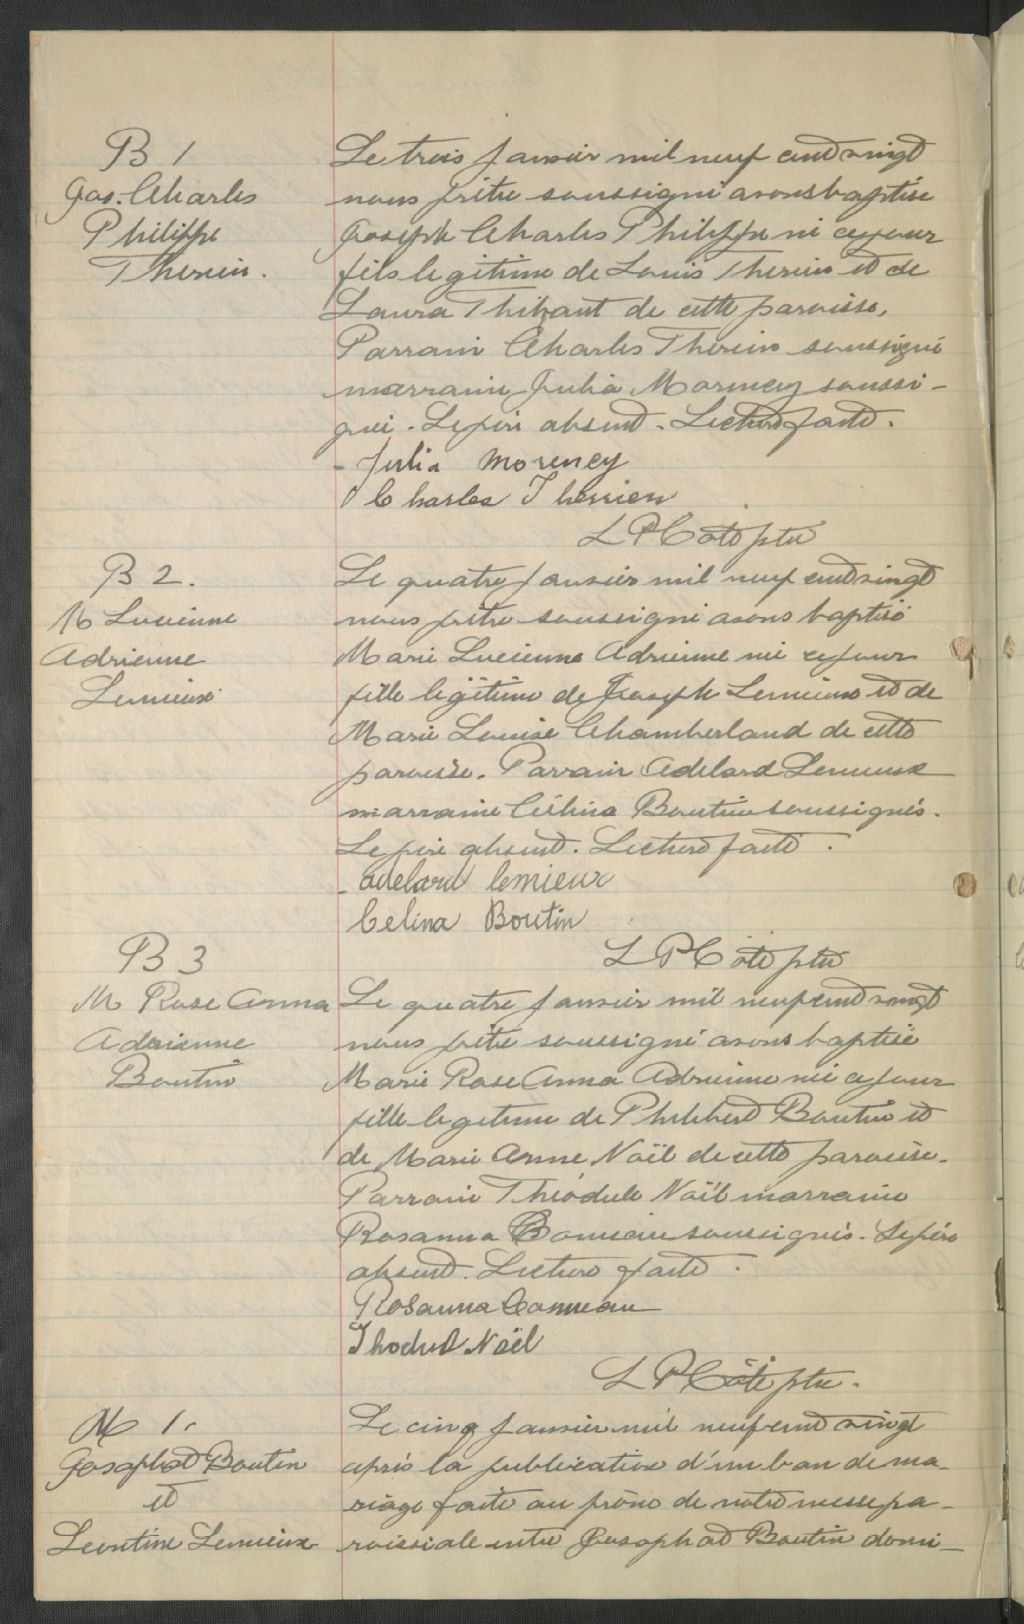 B 1
Jos. Charles
Philippe
Therien.
Le trois janvier mil neuf cent vingt
nous prêtre soussigné avons baptisé
Joseph Charles Philippe né ce jour
fils légitime de Louis Therien et de
Laura Thibaut de cette paroisse.
Parrain Charles Therien soussigné
marraine Julia Morency soussi-
gné. Le père absent. Lecture faite.
Julia Morency
Charles Therrien
L P Côté ptre
B 2.
M Lucienne
Adrienne
Lemieux
Le quatre janvier mil neuf cent vingt
nous prêtre soussigné avons baptisé
Marie Lucienne Adrienne née ce jour
fille légitime de Joseph Lemieux et de
Marie Louise Chamberland de cette
paroisse. Parrain Adelard Lemieux
marraine Célina Boutin soussignés.
Le père absent. Lecture faite.
adelard lemieux
Celina Boutin
L P Côté ptre
B 3
M Rose Anna
Adrienne
Boutin
Le quatre janvier mil neuf cent vingt
nous prêtre soussigné avons baptisé
Marie Rose Anna Adrienne née ce jour
fille légitime de Philibert Boutin et
de Marie Anne Noël de cette paroisse.
Parrain Théodule Noël marraine
Rosanna Comeau soussignés. Le père
absent. Lecture faite.
Rosanna Commeau
Noël
L P Côté ptre.
M 1.
Josaphat Boutin
et
Leontine Lemieux
Le cinq janvier mil neuf cent vingt
après la publication d'un ban de ma-
riage faite au prône de notre messe pa-
roissiale entre Josaphat Boutin domi-